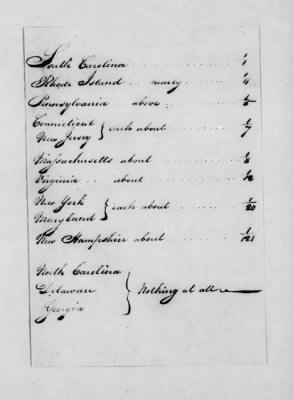 South Carolina 1/1
Rhode Island nearly 1/4
Pennsylvania above 1/5
Connecticut
New Jersey } each about 1/7
Massachusetts about 1/8
Virginia about 1/12
New York
Maryland } each about 1/20
New Hampshire about 1/121
North Carolina
Delaware } Nothing at all
Georgia